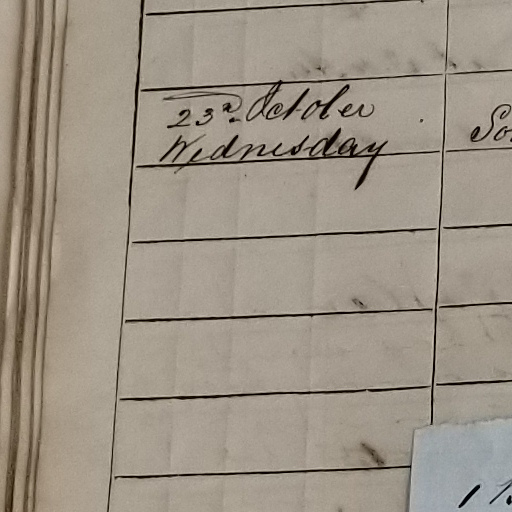 23rd October
Wednesday